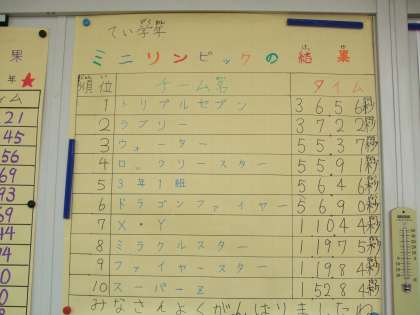 てい学年
ミニリンピックの結果
順位 チーム名 タイム
1 トリプルセブン 36.56秒
2 ラブリー 37.22秒
3 ウォーター 55.37秒
4 ロックリースター 55.91秒
5 3年1組 56.46秒
6 ドラゴンファイヤー 56.90秒
7 X・Y 1.10.44秒
8 ミラクルスター 1.19.75秒
9 ファイヤースター 1.19.84秒
10 スーパーZ 1.52.84秒
みなさんよくがんばりましたね
果
年
イム
21
45
56
69
93
69
44
94